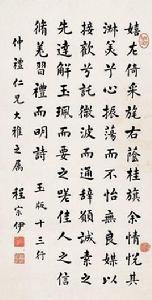 嬉左倚采旄右蔭桂旗余情悅其
淑美兮心振蕩而不怡無良媒以
接歡兮託微波而通辭願誠素之
先達解玉珮而要之嗟佳人之信
脩羌習禮而明詩 玉版十三行
仲禮仁兄大雅之属 程宗伊